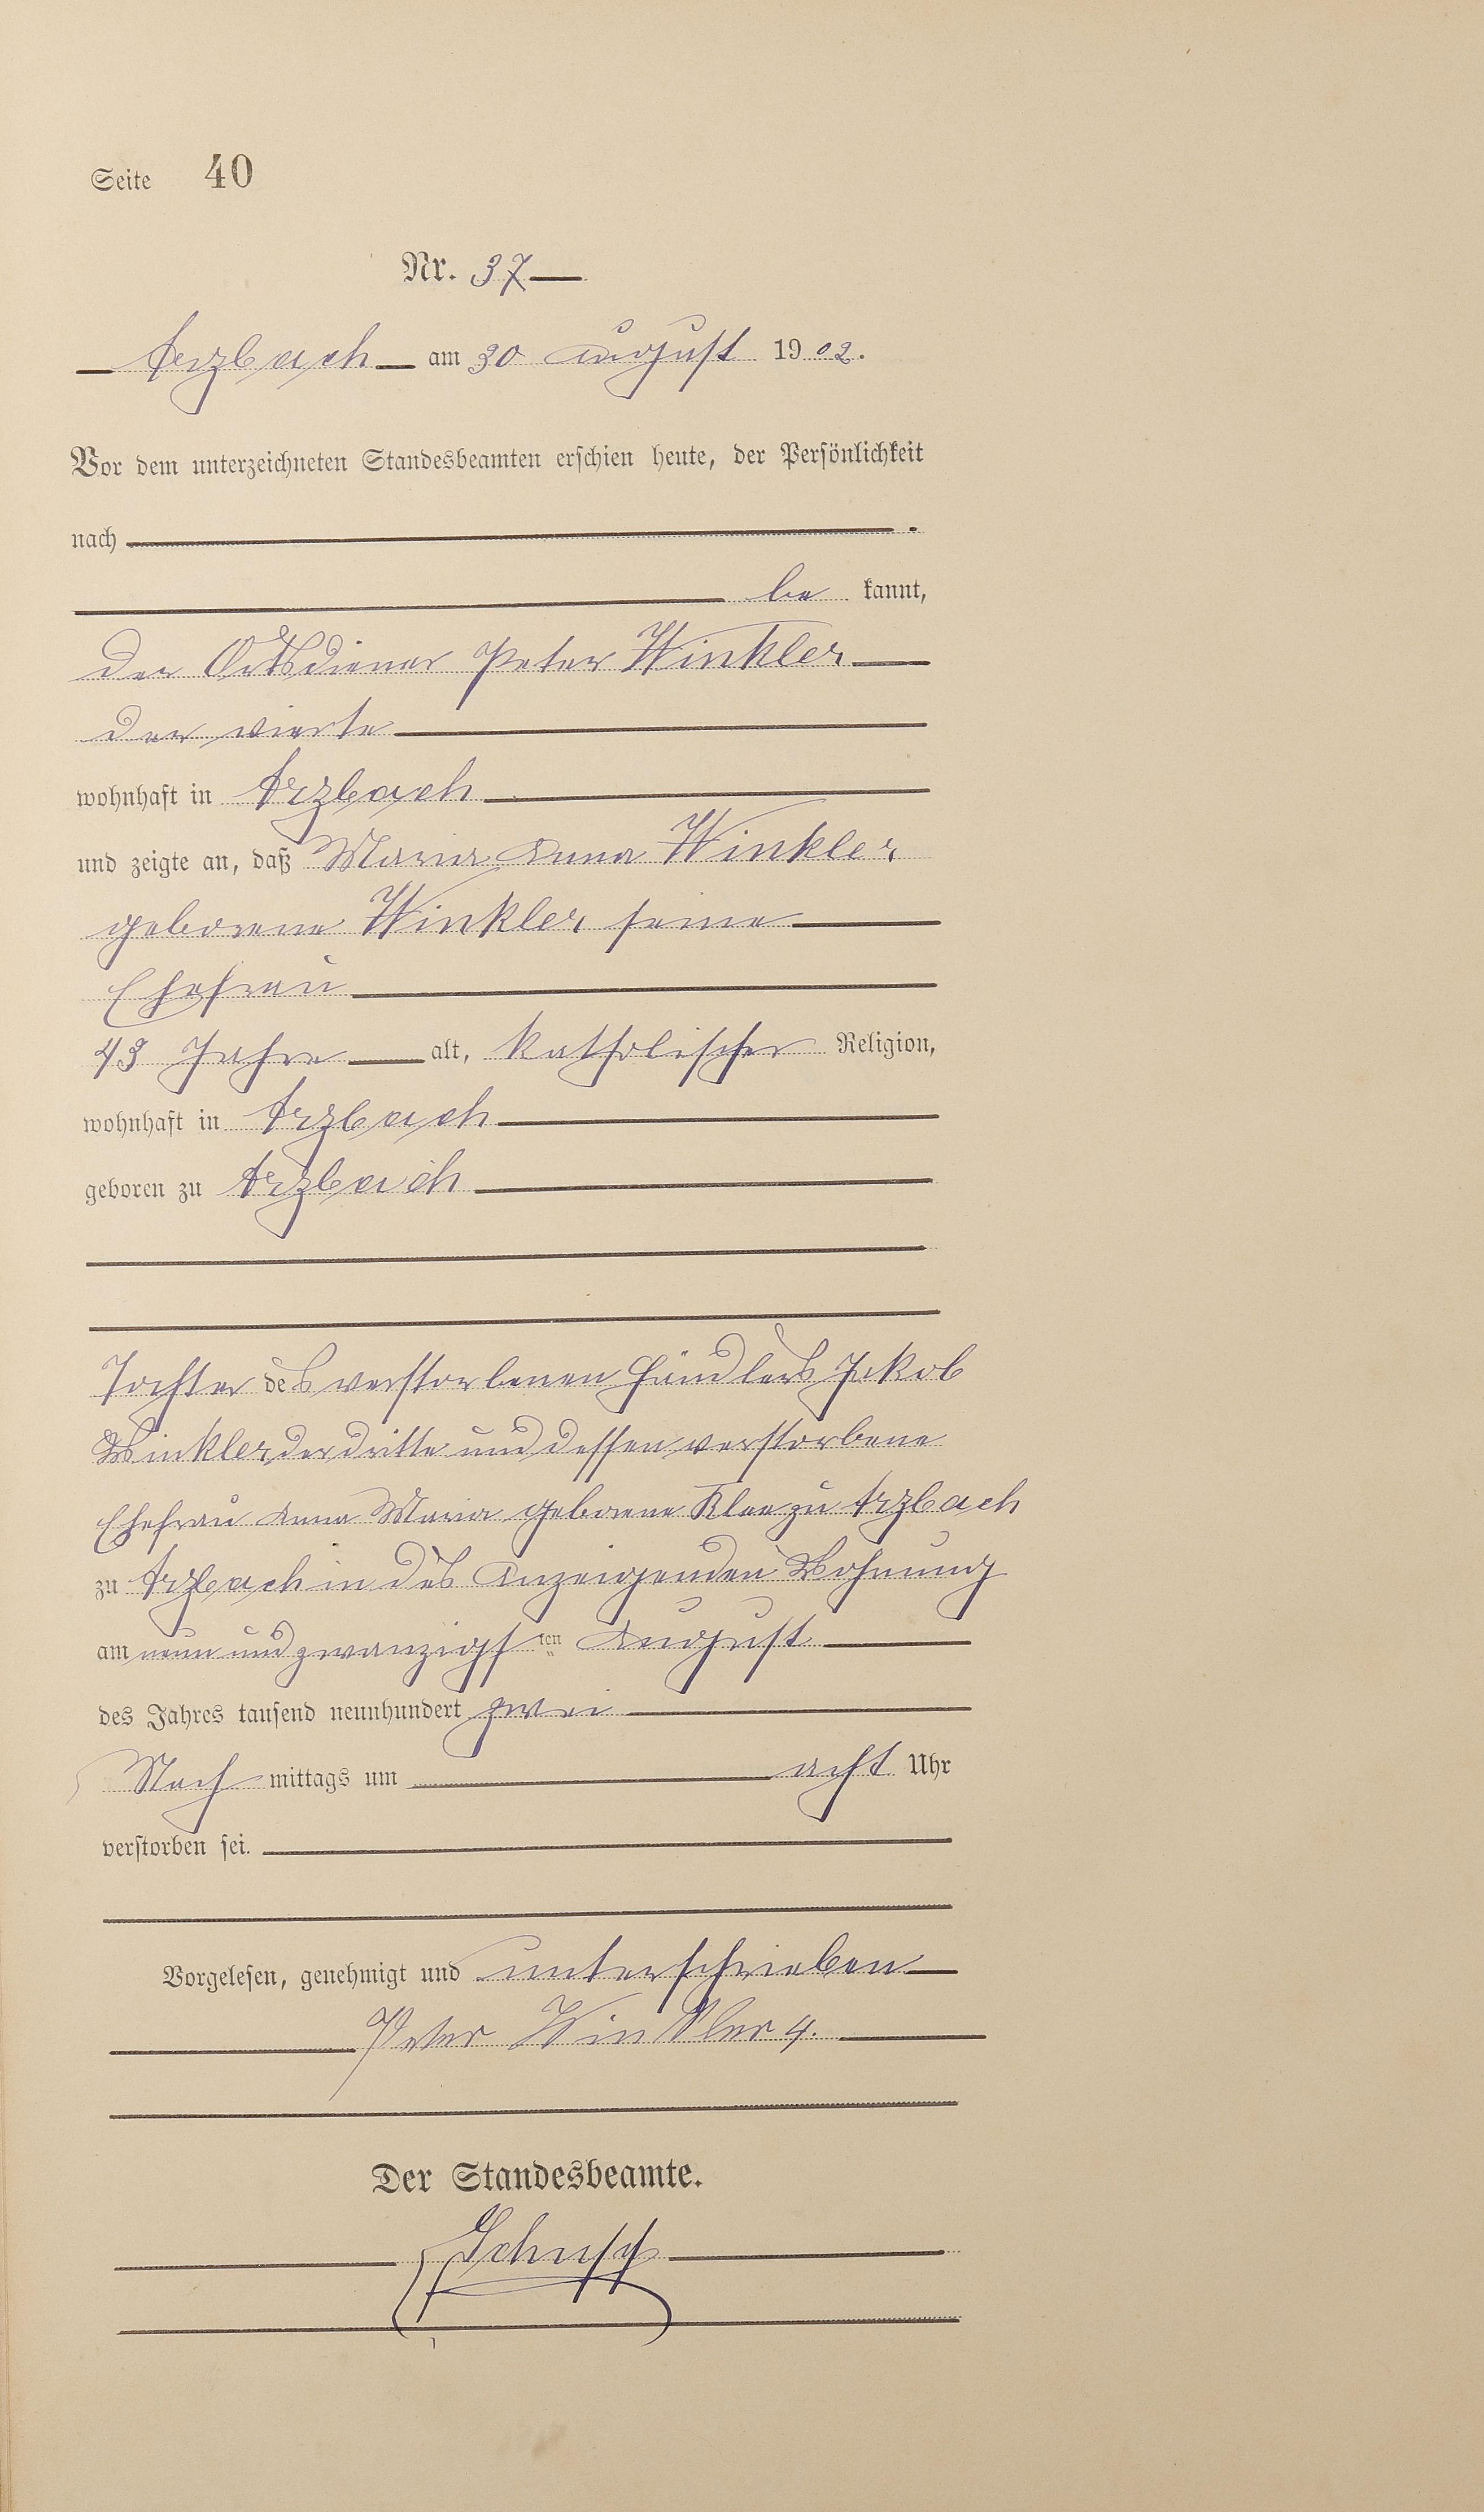 Seite 40
Nr. 37
Arzbach am 30 August 1902.
Vor dem unterzeichneten Standesbeamten erschien heute, der Persönlichkeit
nach
be kannt,
der Ortsdiener Peter Winkler
der vierte
wohnhaft in Arzbach
und zeigte an, daß Maria Anna Winkler
geborene Winkler seine
Ehefrau
43 Jahre alt, katholischer Religion,
wohnhaft in Arzbach
geboren zu Arzbach
Tochter des verstorbenen Händlers Jakob
Winkler der dritte und dessen verstorbene
Ehefrau Anna Maria geborene Klee zu Arzbach
zu Arzbach in des Anzeigenden Wohnung
am neun und zwanzigsten August
des Jahres tausend neunhundert zwei
Nach mittags um acht Uhr
verstorben sei.
Vorgelesen, genehmigt und unterschrieben
Peter Winkler 4.
Der Standesbeamte.